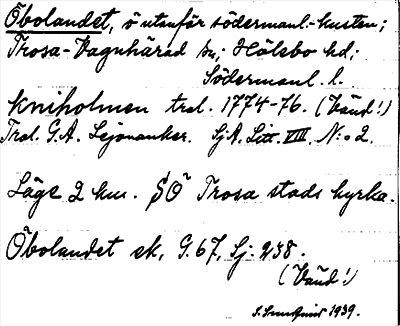 Öbolandet, ö utanför södermanl.-kusten;
Trosa-Vagnhärad sn; Hölebo hd;
Södermanl. l.
Kniholmen tral. 1774-76. (Vänd!)
Tral. G.A. Lejonanker. Sj.A. Litt. VIII N:o 2.
Läge 2 km. SO Trosa stads kyrka.
Öbolandet ek, G. 67, Sj: 238.
(Vänd!)
1939.